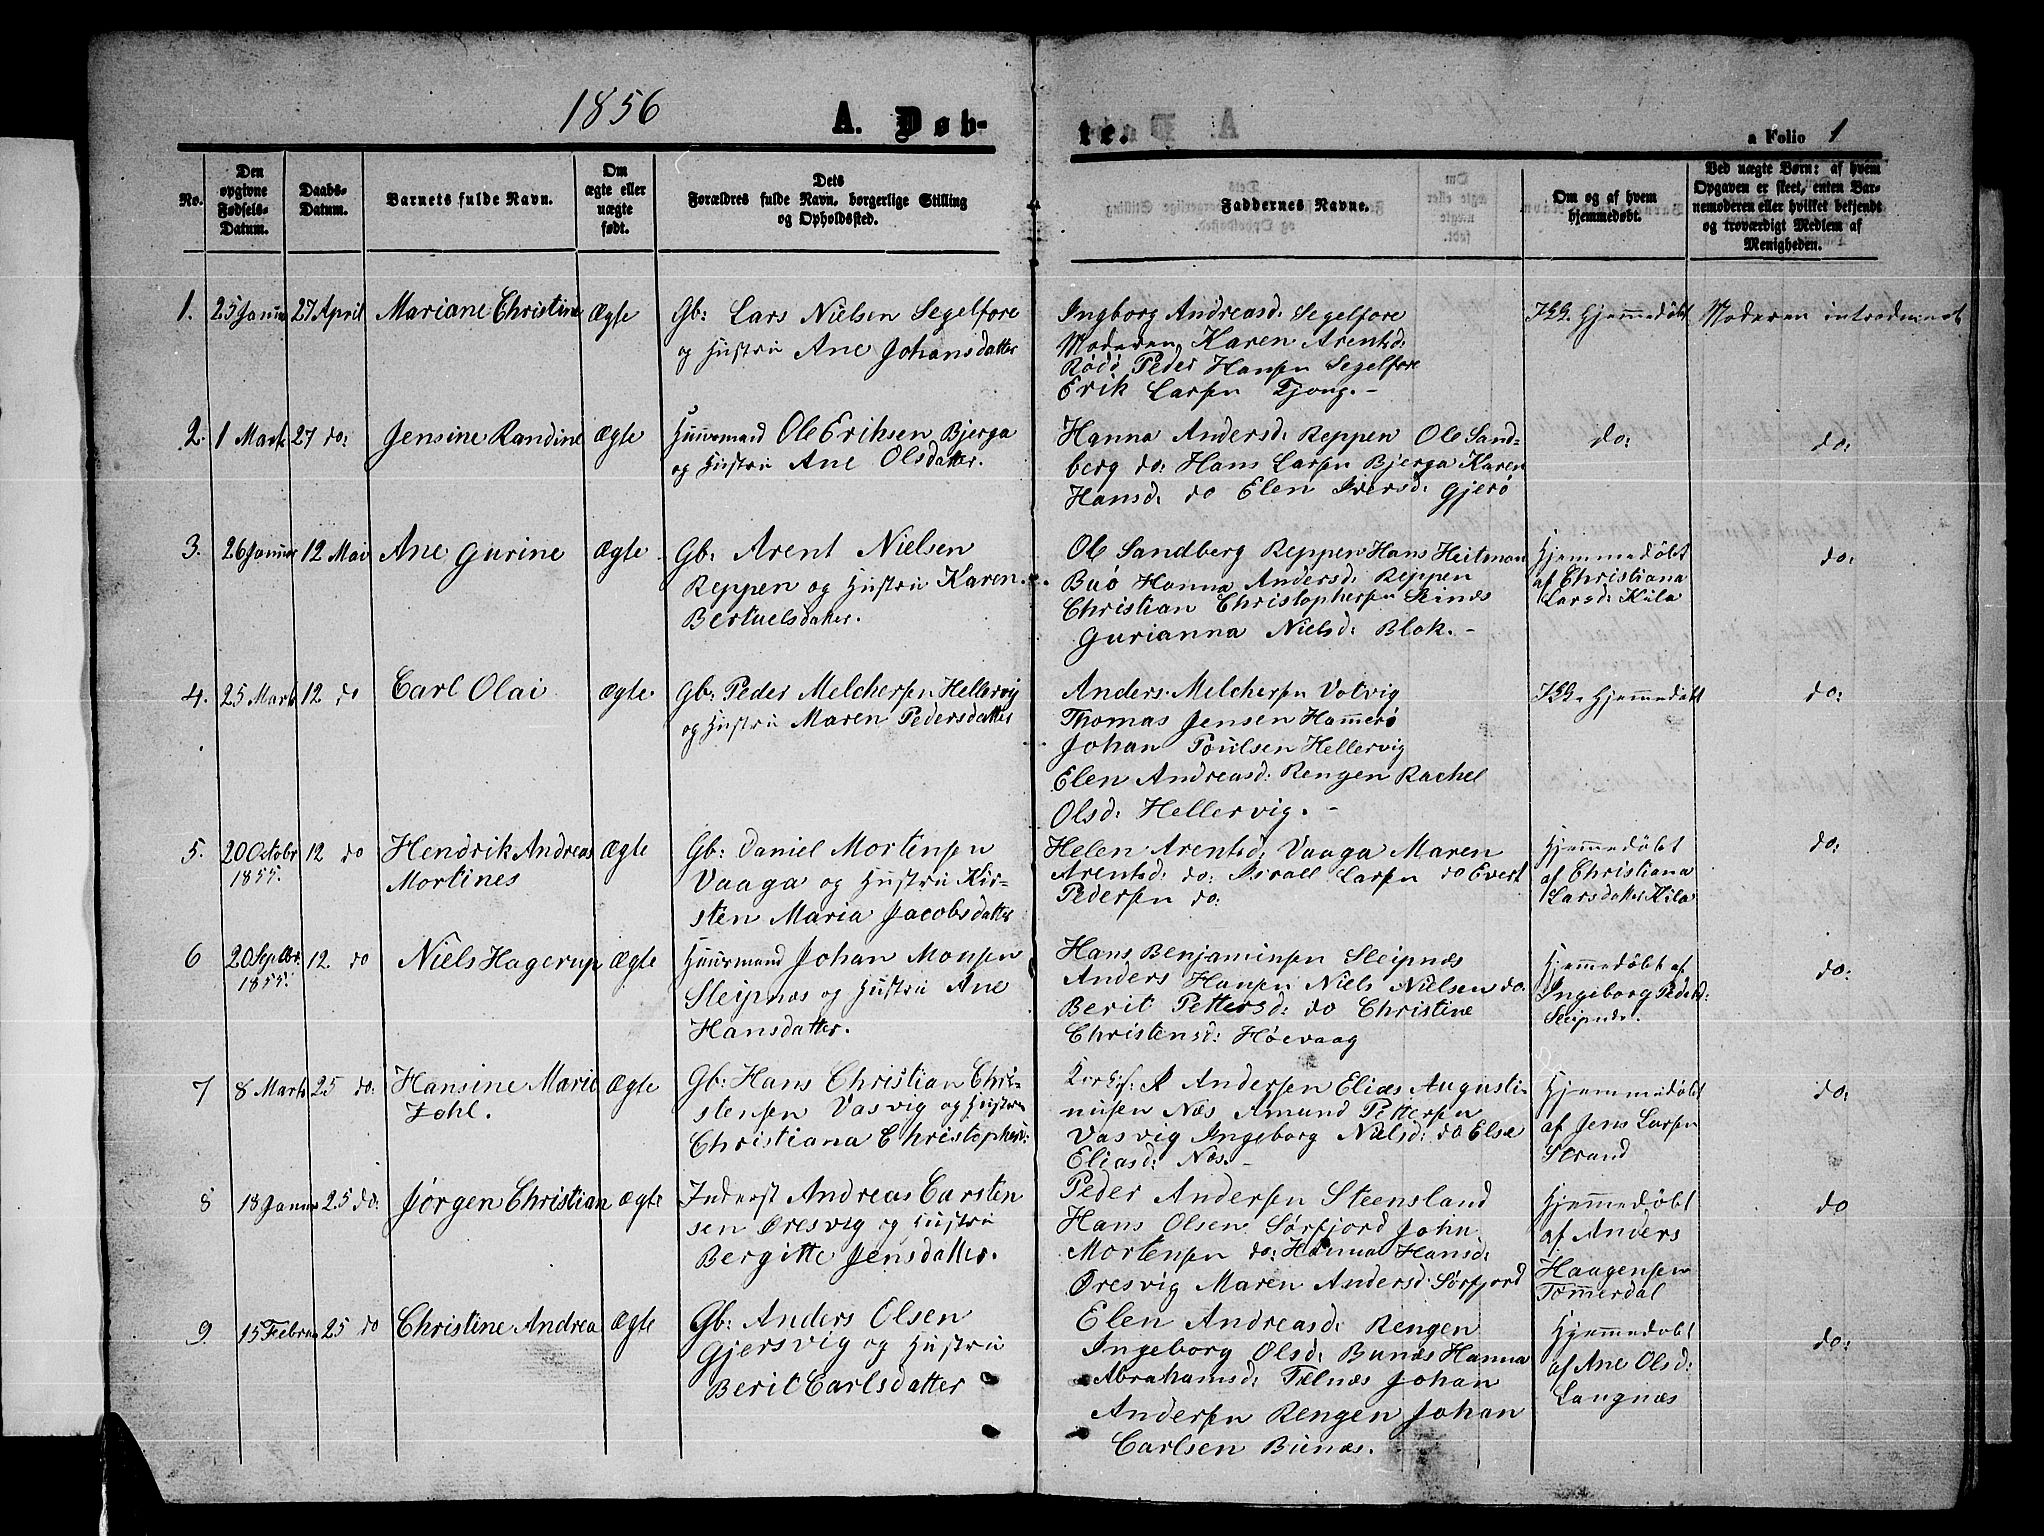 1856
A. Døb-
te.
a Folio 1
No.
Den
opgivne
Fødsels-
Datum.
Daabs-
Datum.
Barnets fulde Navn.
Om
ægte eller
uægte
født.
Dets
Forældres fulde Navn, borgerlige Stilling
og Opholdssted.
Faddernes Navne.
Om og af hvem
hjemmedøbt.
Ved uægte Børn: af hvem
Opgaven er skeet, enten Bar-
nemoderen eller hvilket bekjendt
og troværdigt Medlem af
Menigheden.
1. 25 Januar 27 April Mariane Christine Ægte
Gb: Lars Nielsen Segelfore
og Hustru Ane Johansdatter
Ingborg Andreasd: Segelfore
Moderen, Karen Arentsd:
Rödö Peder Hansen Segelfore
Erik Larsen Tjong. -
Ikke Hjemmedøbt
Moderen introduceret
2. 1 Marts 27 do: Jensine Randine Ægte
Huusmand Ole Eriksen Bjerga
og Hustru Ane Olsdatter.
Hanna Andersd: Reppen Ole Sand-
berg do: Hans Larsen Bjerga Karen
Hansd: do Elen Iversd: Gjerö
do:
do:
3. 26 Januar 12 Mai Ane Gurine Ægte
Gb: Arent Nielsen
Reppen og Hustru Karen
Bertuelsdatter.
Ole Sandberg Reppen Hans Heitman
Buö Hanna Andersd: Reppen
Christian Christophersen Selnæs
Gurianna Nielsd: Blok. -
Hjemmedøbt
af Christiana
Larsd: Kila
do:
4. 25 Marts 12 do Carl Olai Ægte
Gb: Peder Melchersen Hellervig
og Hustru Maren Pedersdatter
Anders Melchersen Votvig
Thomas Jensen Hammerö
Johan Poulsen Hellervig
Elen Andreasd: Rengen Rachel
Olsd: Hellervig. -
Ikke Hjemmedøbt
do:
5. 20 Octobr 12 do Hendrik Andreas Ægte
1855.
Mortines
Gb: Daniel Mortensen
Vaaga og Hustru Kir-
sten Maria Jacobsdatter
Helen Arentsd: Vaaga Maren
Arentsd: do: Israel Larsen do Evert
Pedersen do:
Hjemmedøbt
af Christiana
Larsdatter Kila
do:
6 20 Septbr. 12. do Niels Hagerup Ægte
1855.
Huusmand Johan Monsen
Sleipnæs og Hustru Ane
Hansdatter.
Hans Benjaminsen Sleipnæs
Anders Hansen Niels Nielsen do:
Berit Pettersd: do Christine
Christensd: Höevaag
Hjemmedøbt af
Ingeborg Pedersd:
Sleipnæs.
do:
7 8 Marts 25 do: Hansine Marie Ægte
Zohl.
Gb: Hans Christian Chri-
stensen Vasvig og Hustru
Christiana Christophersd:
Andersen Elias Augusti-
nusen Næs Amund Pettersen
Vasvig Ingeborg Nielsd: do Else
Eliasd: Næs. -
Hjemmedøbt
af Jens Larsen
Strand
do:
8 18 Januar 25 do: Jørgen Christian Ægte
Inderst Andreas Carsten
sen Øresvig og Hustru
Bergitte Jensdatter.
Peder Andersen Steensland
Hans Olsen Sørfjord John
Mortensen do: Hanna Hansd:
Øresvig Maren Andersd: Sørfjord
Hjemmedøbt
af Anders
Haagensen
Tømmerdal
do
9. 15 Februar 25 do Christine Andrea Ægte
Gb: Anders Olsen
Gjersvig og Hustru
Berit Carlsdatter
Elen Andreasd: Rengen
Ingeborg Olsd: Bunæs Hanna
Abrahamsd: Telnæs Johan
Andersen Rengen Johan
Carlsen Bunæs.
Hjemmedøbt
af Ane Olsd:
Langnæs
do: